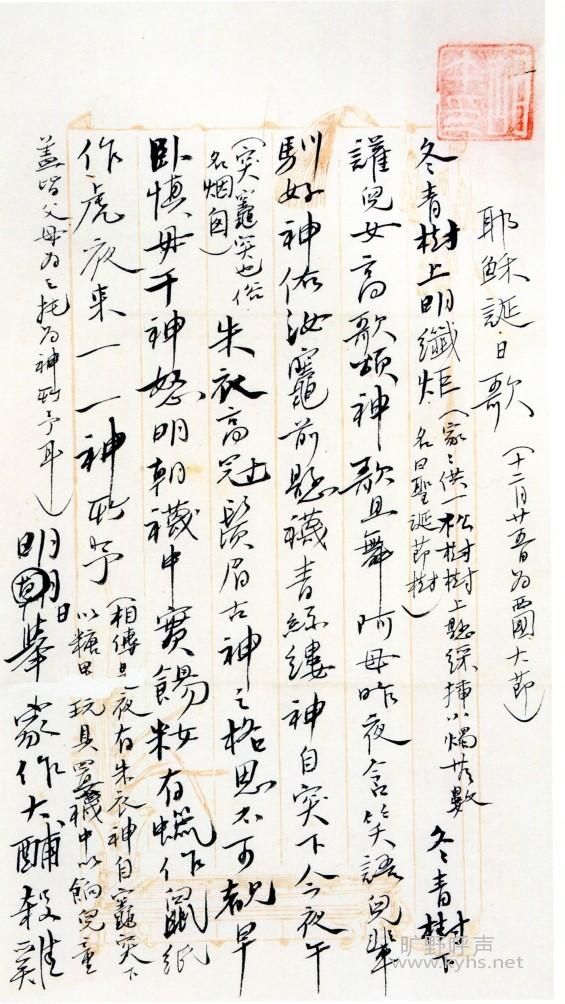 耶穌誕日歌（十二月廿五日為西國大節）
冬青樹上明纖炬（家〻供一松樹樹上懸綵插小燭無數名曰聖誕節樹）冬青樹下
讙兒女高歌頌神歌且舞 阿母昨夜含笑語兒輩
馴好神佑汝竈前懸襪青絲縷神自突下今夜午
（突竈突也俗名烟囱）朱衣高冠鬚眉古神之格思不可覩早
臥慎毋干神怒明朝襪中實餳籹有蠟作鼠紙
作虎夜来一一神所予（相傳是夜有朱衣神自竈突下以糖果玩具置襪中以餉兒童
蓋皆父母為之托為神所予耳）明日舉家作大酺殺雞
旷野呼声
www.kyhs.net